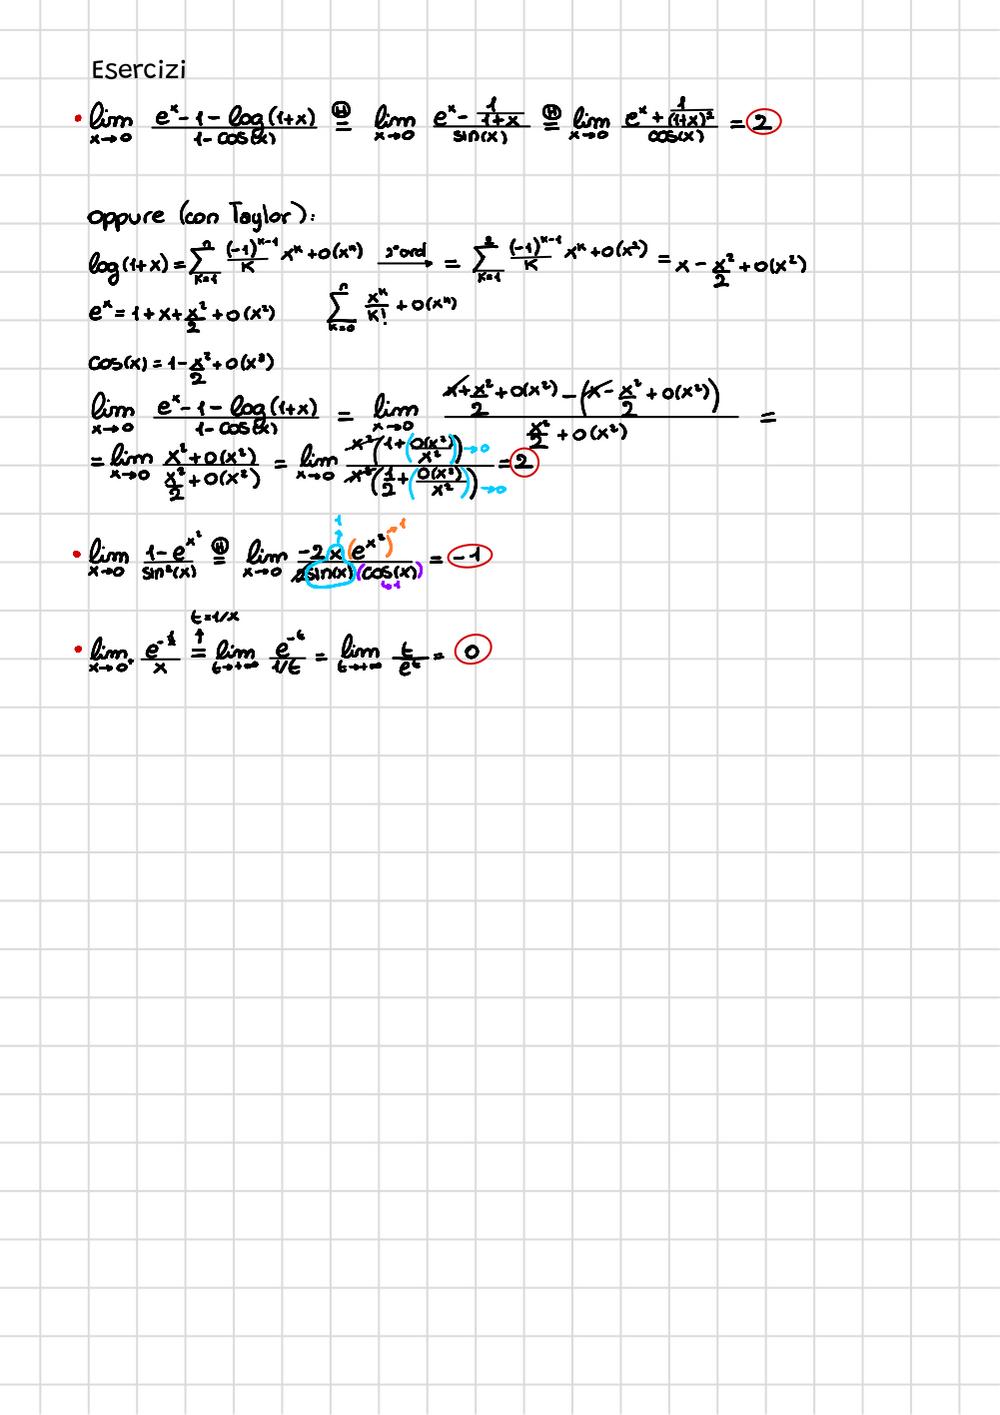 Esercizi
• lim x→0 (e^x - 1 - log(1+x))/(1 - cos(x)) =(H) lim x→0 (e^x - 1/(1+x))/sin(x) =(H) lim x→0 (e^x + 1/(1+x)²)/cos(x) = 2
oppure (con Taylor):
log(1+x) = ∑_{k=1}^{n} (-1)^{k-1}/k x^k + o(x^n) 2°ord → = ∑_{k=1}^{2} (-1)^{k-1}/k x^k + o(x²) = x - x²/2 + o(x²)
e^x = 1 + x + x²/2 + o(x²) ∑_{k=0}^{n} x^k/k! + o(x^n)
cos(x) = 1 - x²/2 + o(x³)
lim x→0 (e^x - 1 - log(1+x))/(1 - cos(x)) = lim x→0 (x + x²/2 + o(x²) - (x - x²/2 + o(x²)))/(x²/2 + o(x²)) =
= lim x→0 (x² + o(x²))/(x²/2 + o(x²)) = lim x→0 x²(1 + (o(x²)/x²)) →0 / x²(1/2 + (o(x³)/x²)) →0 = 2
• lim x→0 (1 - e^{x²})/sin²(x) =(H) lim x→0 (-2x (e^{x²}))/(2 sin(x) (cos(x))) = -1 1 1 1
t=1/x
• lim x→0⁺ e^{-1/x}/x = lim t→+∞ e^{-t}/(1/t) = lim t→+∞ t/e^t = 0